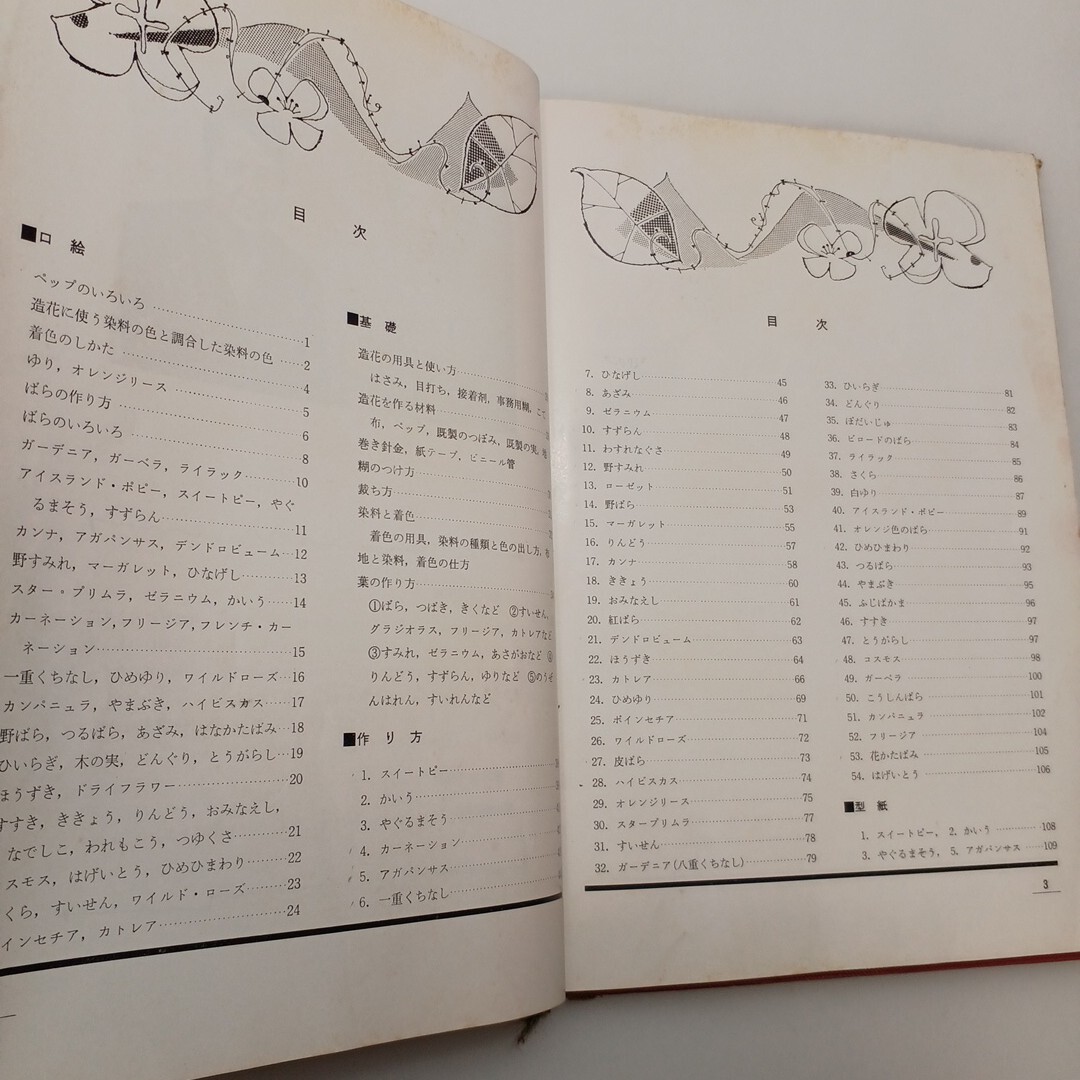 目次
■口絵
ペップのいろいろ……1
造花に使う染料の色と調合した染料の色……2
着色のしかた……4
ゆり，オレンジリース……5
ばらの作り方……6
ばらのいろいろ……8
ガーデニア，ガーベラ，ライラック……10
アイスランド・ポピー，スイートピー，やぐ
るまそう，すずらん……11
カンナ，アガパンサス，デンドロビューム……12
野すみれ，マーガレット，ひなげし……13
スター＝プリムラ，ゼラニウム，かいう……14
カーネーション，フリージア，フレンチ・カー
ネーション……15
一重くちなし，ひめゆり，ワイルドローズ……16
カンパニュラ，やまぶき，ハイビスカス……17
野ばら，つるばら，あざみ，はなかたばみ……18
ひいらぎ，木の実，どんぐり，とうがらし……19
ほうずき，ドライフラワー……20
すすき，ききょう，りんどう，おみなえし，
なでしこ，われもこう，つゆくさ……21
スモス，はげいとう，ひめひまわり……22
くら，すいせん，ワイルド・ローズ……23
インセチア，カトレア……24
■基礎
造花の用具と使い方
はさみ，目打ち，接着剤，事務用糊，こて
造花を作る材料
布，ペップ，既製のつぼみ，既製の実，地
巻き針金，紙テープ，ビニール管
糊のつけ方
裁ち方
染料と着色
着色の用具，染料の種類と色の出し方，
地と染料，着色の仕方
葉の作り方
①ばら，つばき，きくなど ②すいせん，
グラジオラス，フリージア，カトレアなど
③すみれ，ゼラニウム，あさがおなど
りんどう，すずらん，ゆりなど ⑤のうぜ
んはれん，すいれんなど
■作り方
1. スイートピー
2. かいう
3. やぐるまそう
4. カーネーション
5. アガパンサス
6. 一重くちなし
目次
7. ひなげし……45
8. あざみ……46
9. ゼラニウム……47
10. すずらん……48
11. わすれなぐさ……49
12. 野すみれ……50
13. ローゼット……51
14. 野ばら……53
15. マーガレット……55
16. りんどう……57
17. カンナ……58
18. ききょう……60
19. おみなえし……61
20. 紅ばら……62
21. デンドロビューム……63
22. ほうずき……64
23. カトレア……66
24. ひめゆり……69
25. ポインセチア……71
26. ワイルドローズ……72
27. 皮ばら……73
28. ハイビスカス……74
29. オレンジリース……75
30. スタープリムラ……77
31. すいせん……78
32. ガーデニア（八重くちなし）……79
33. ひいらぎ……81
34. どんぐり……82
35. ぼだいじゅ……83
36. ビロードのばら……84
37. ライラック……85
38. さくら……86
39. 白ゆり……87
40. アイスランド・ポピー……89
41. オレンジ色のばら……91
42. ひめひまわり……92
43. つるばら……93
44. やまぶき……95
45. ふじばかま……96
46. すすき……97
47. とうがらし……97
48. コスモス……98
49. ガーベラ……100
50. こうしんばら……101
51. カンパニュラ……102
52. フリージア……104
53. 花かたばみ……105
54. はげいとう……106
■型紙
1. スイートピー， 2. かいう……108
3. やぐるまそう， 5. アガパンサス……109
3